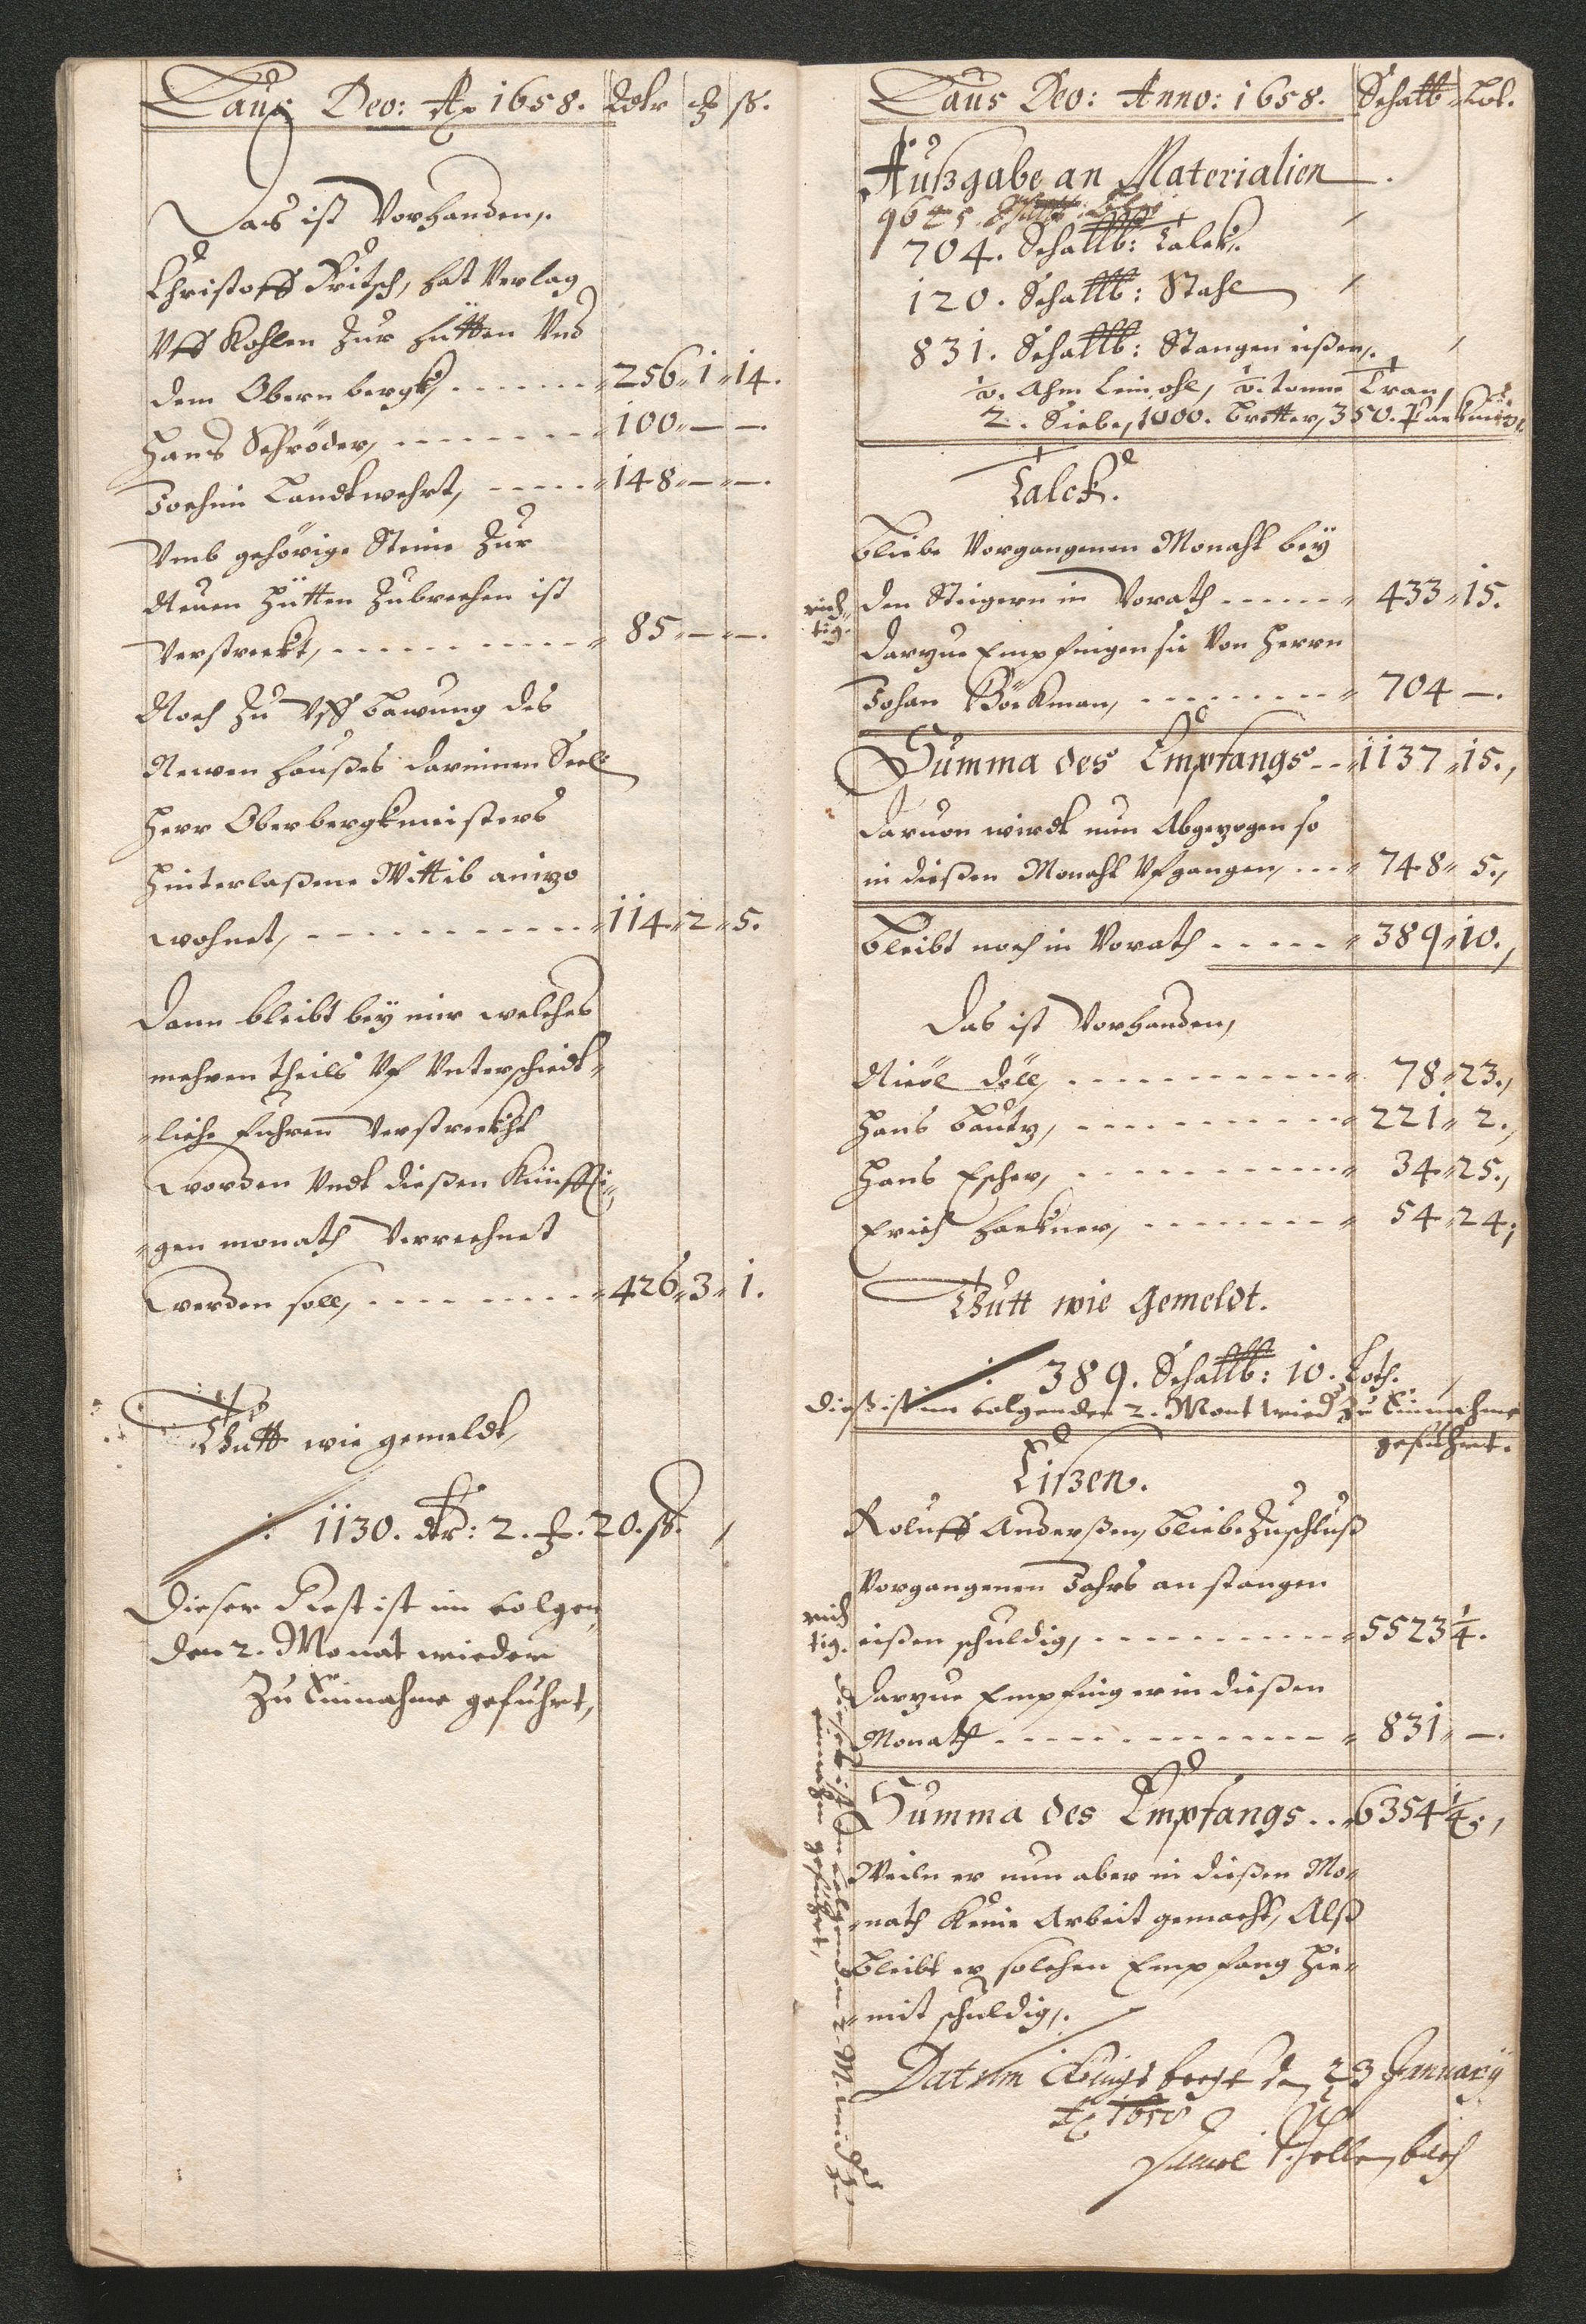 Laus Deo: Ao 1658. Rdtr ȝ ß.
Das ist Vorhanden,.
Christoff Fritsch, hat Verlag
Vff Kohlen Zur hütten Vnd
dem Obern bergk, - - - - - - 256. 1. 14.
Hans Schröder, - - - - - - - 100. — —.
Jochim Landtwehrt, - - - - - 148. — —.
Vmb gehörige Steine Zur
Neuen Hütten Zubrechen ist
Verstreckt, - - - - - - - - - 85. — —.
Noch Zu Vff bawung des
Newen haußes darinnen Seel:
Herr Oberbergkmeisters
hinterlaßene Wittib anizo
wohnet, - - - - - - - - - - 114. 2. 5.
Dann bleibt bey mir welches
mehren theils Vf Vnterschiedt-
-liche fuhren Verstreckht
worden Vndt dießen Künffti-
-gen monath Verrechnet
werden soll, - - - - - - - - 426. 3. 1.
Thutt wie gemeldt,
: 1130. dtr: 2. ȝ. 20. ß.
Dieser Rest ist im volgen
den 2. Monat wieder
Zu Einnahme geführt,
Laus Deo: Anno: 1658. Schaltt lb Lot.
Außgabe an Materialien.
704. Schaltt lb: Talck.
120. Schaltt lb: Stahl
831. Schaltt lb: Stangen eißen,.
½. Ahm Lein ohl, ½. tonne Tran,
2. Siebe, 1000. bretter, 350.
Talck.
bliebe Vorgangenen Monaht bey
rich-
tig.
den Steigern in Vorath - - - - - 433. 15.
Darzue Empfingen sie Von Herrn
Johan Böckman, - - - - - - - 704 —.
Summa des Empfangs - - 1137. 15.,
Daruon wirdt nun Abgezogen so
in dießen Monaht Vfgangen, - - - 748. 5.,
bleibt noch in Vorath - - - - - 389. 10.,
Das ist Vorhanden,
Nicol Döll, - - - - - - - - - 78. 23.,
Hans bautz, - - - - - - - - - 221. 2.,
Hans Escher, - - - - - - - - - 34. 25.,
Erich Hackner, - - - - - - - - 54. 24.,
Thutt wie gemeldt.
: 389. Schaltt lb: 10. Loth.
Dieß ist im volgenden 2. Mont wied Zu Einnahme
geführt.
Eißen.
Roluff Anderßen, bliebe Zuschluß
Vorgangenen Jahrs an stangen
rich
tig.
eißen schuldig, - - - - - - - - 5523 ¼.
Darzue Empfing er in dießen
Monath - - - - - - - - - - 831. —.
Summa des Empfangs . . 6354 ¼.,
Weiln er nun aber in dießen Mo-
-nath Keine Arbeit gemacht, Alß
bleibt er solchen Empfang hie-
-mit schuldig,.
Dieser ist im volgenden 2. M. wied Zu
einnahm geführt,
Datum Königsbergk den 23 January
Ao 1658